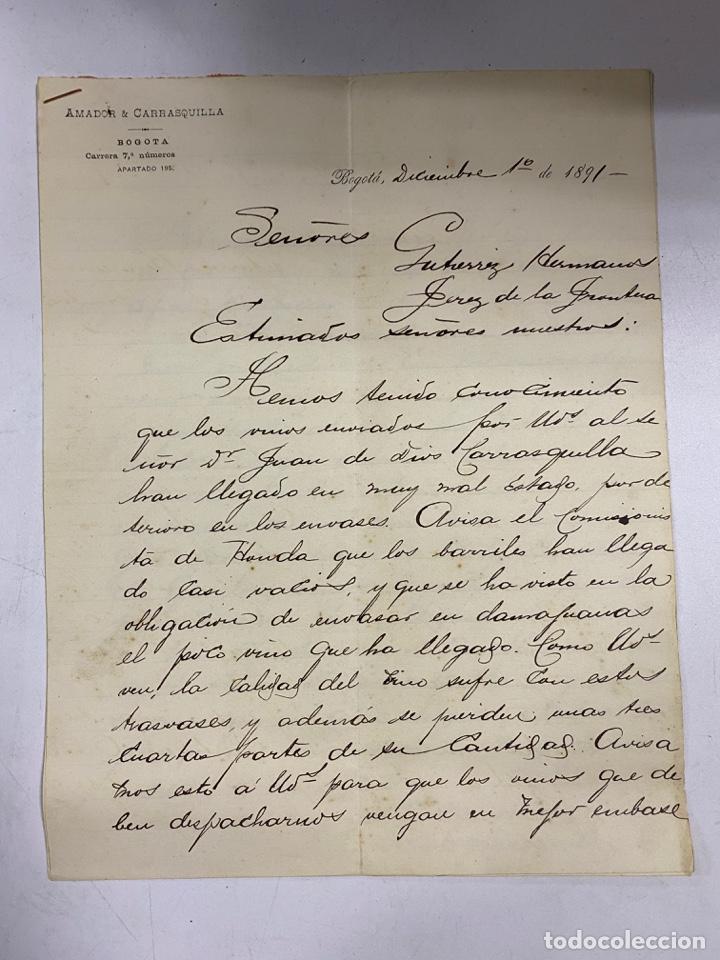 AMADOR & CARRASQUILLA
BOGOTA
Carrera 7,ª números
APARTADO 195.
Bogotá, Diciembre 1º de 1891-
Señores
Gutierrez Hermanos
Jerez de la Frontera
Estimados señores nuestros:
Hemos tenido conocimiento
que los vinos enviados por Uds al se
ñor Dr Juan de Dios Carrasquilla
han llegado en muy mal estado, por de
terioro en los envases. Avisa el Comisionis
ta de Honda que los barriles han llega
do casi vacios, y que se ha visto en la
obligación de envasar en damajuanas
el poco vino que ha llegado. Como Uds
ven, la calidad del vino sufre con estos
trasvases, y además se pierden unas tres
cuartas partes de su cantidad. Avisa
mos esto á Uds para que los vinos que de
ben despacharnos vengan en mejor embase
todocoleccion.net